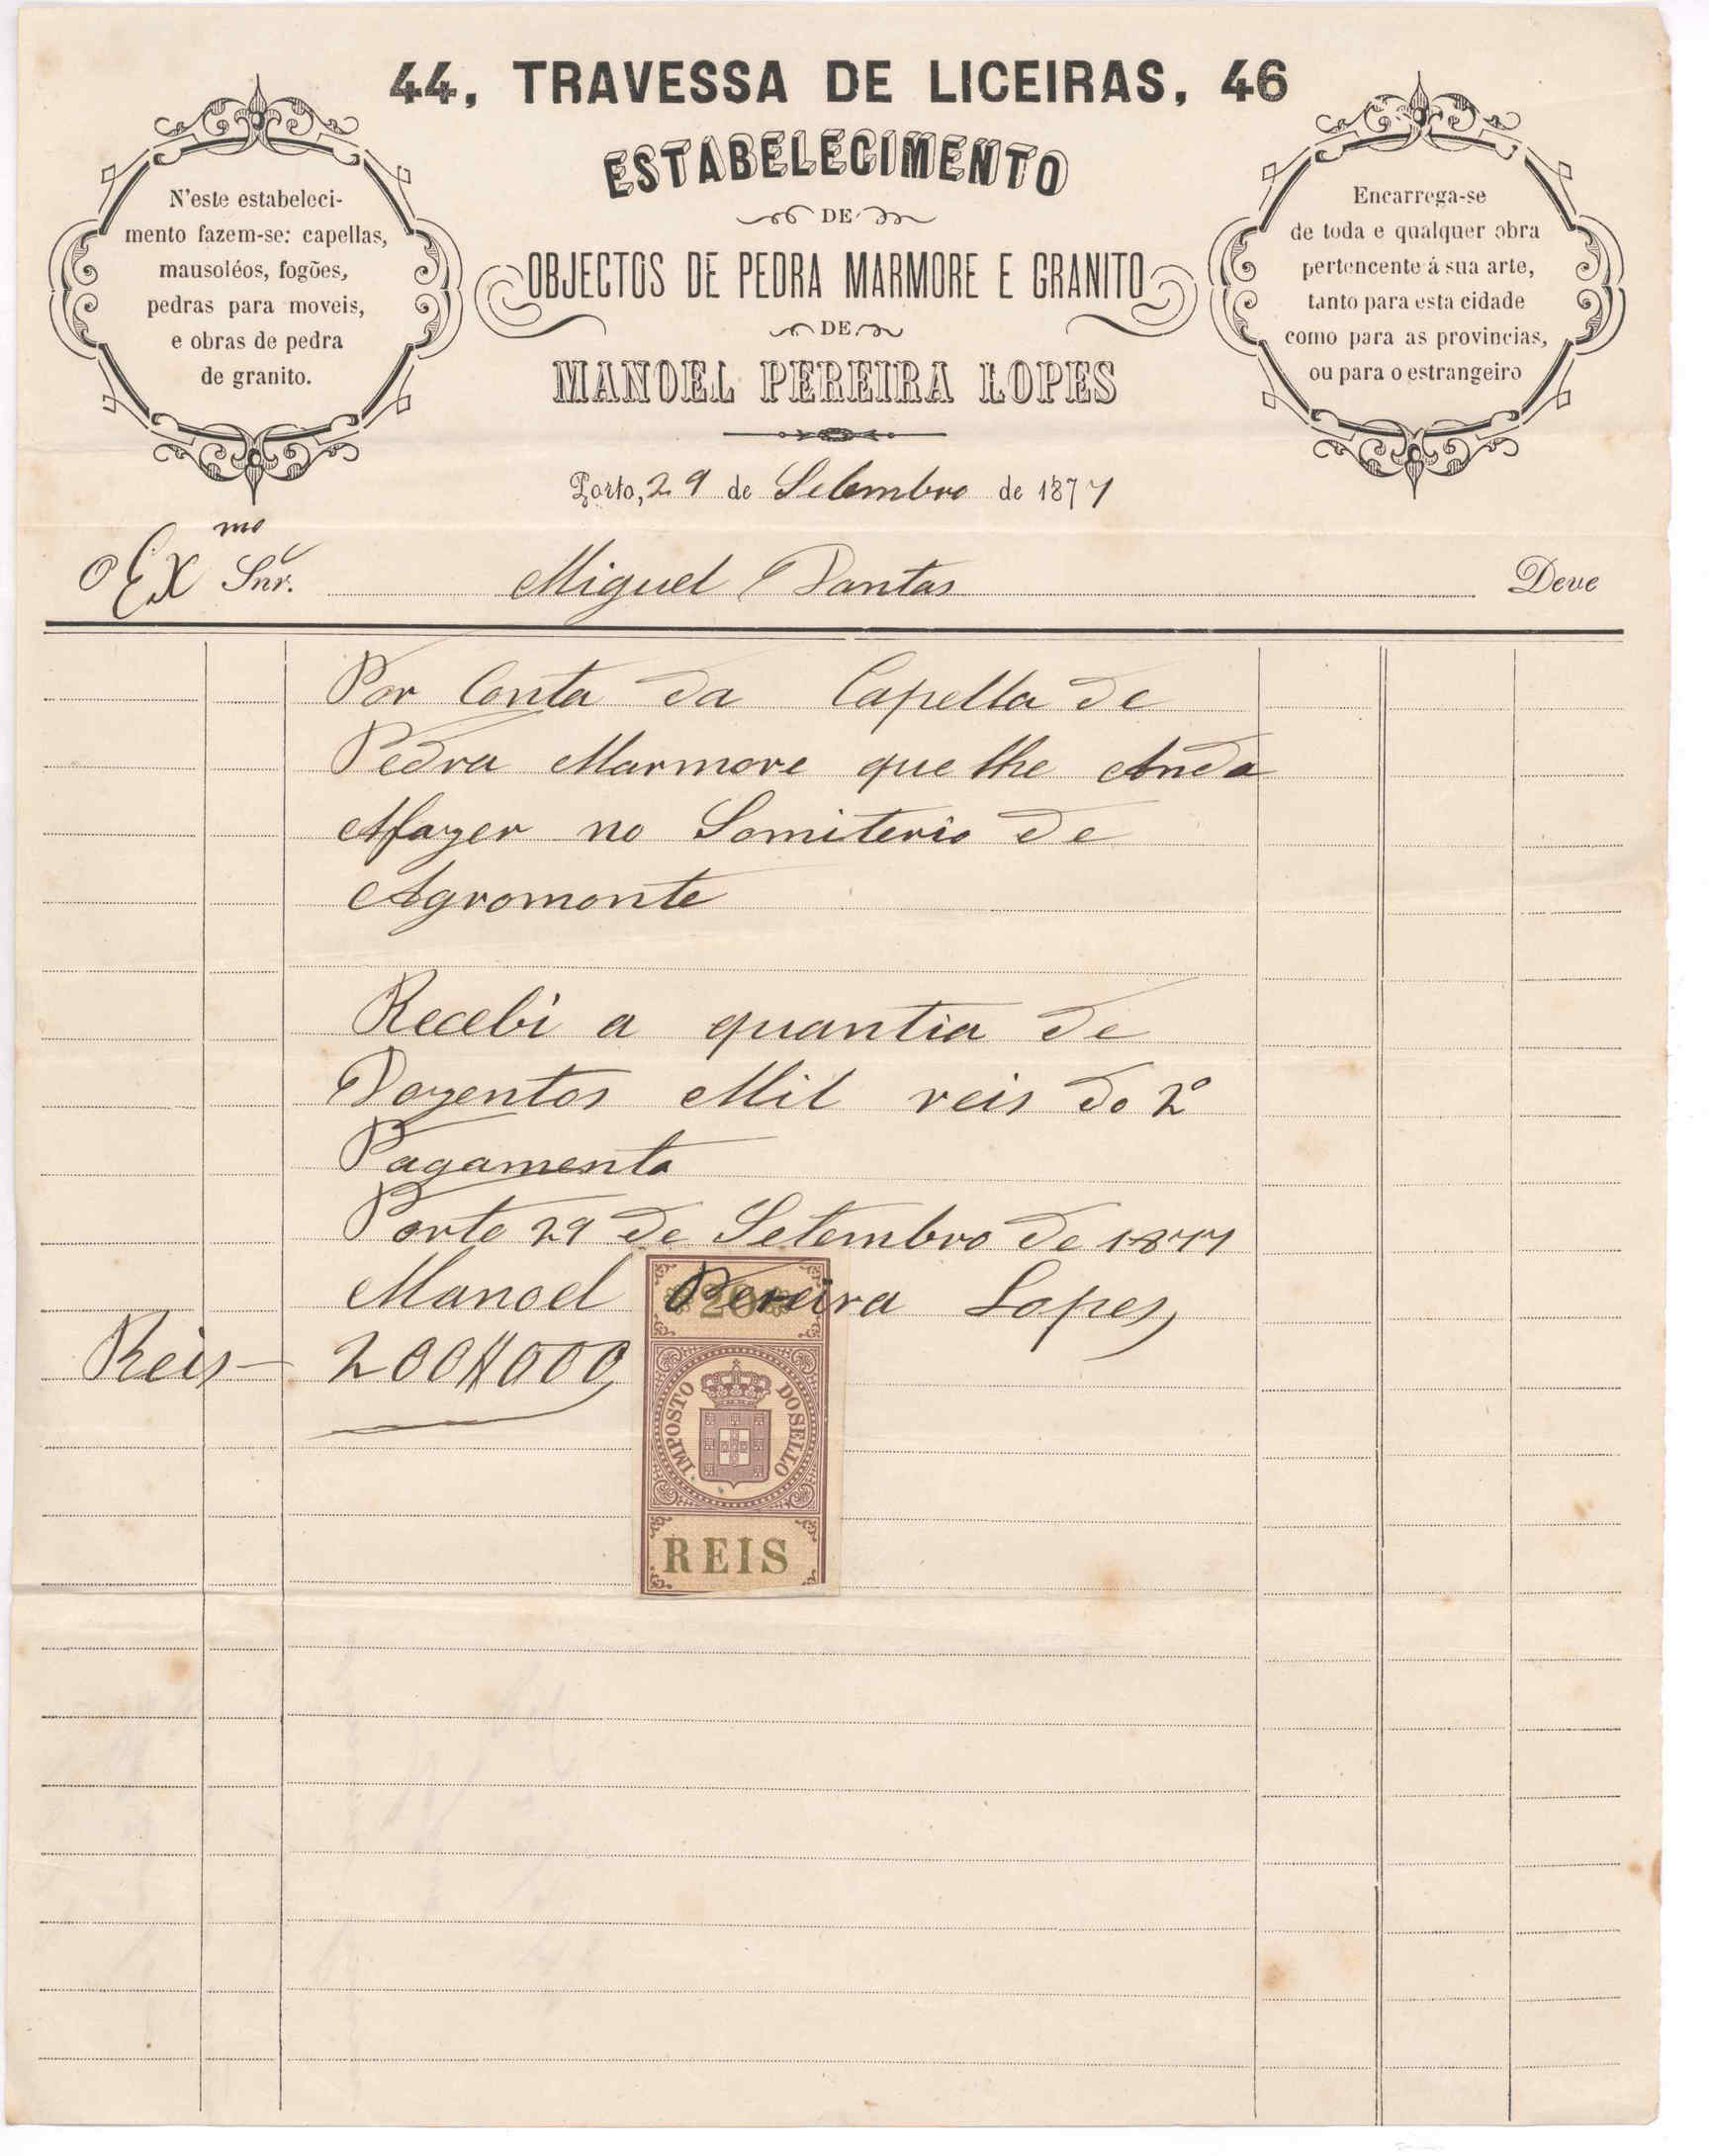 44, TRAVESSA DE LICEIRAS, 46
ESTABELECIMENTO
DE
OBJECTOS DE PEDRA MARMORE E GRANITO
DE
MANOEL PEREIRA LOPES
N'este estabeleci-
mento fazem-se: capellas,
mausoléos, fogões,
pedras para moveis,
e obras de pedra
de granito.
Encarrega-se
de toda e qualquer obra
pertencente á sua arte,
tanto para esta cidade
como para as provincias,
ou para o estrangeiro
Porto, 29 de Setembro de 1877
O Exmo Snr. Miguel Dantas Deve
Por Conta da Capella de
Pedra Marmore que lhe Anda
Afazer no Somiterio de
Agromonte
Recebi a quantia de
Dozentos Mil reis do 2º
Pagamento
Porto 29 de Setembro de 1877
Manoel Pereira Lopes
Reis 200$000
20
IMPOSTO DO SELLO
REIS